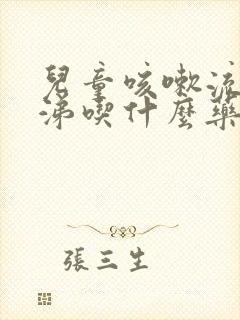 兒童咳嗽流
涕喫什麼藥
張三生